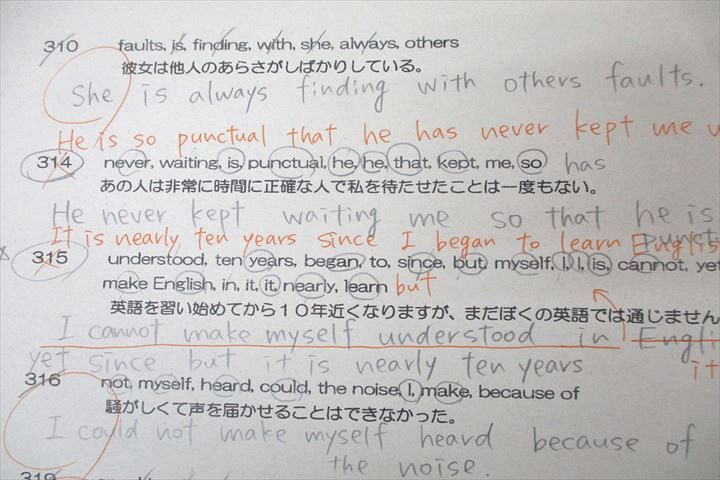 310 faults, is, finding, with, she, always, others
彼女は他人のあらさがしばかりしている。
She is always finding with others faults.
He is so punctual that he has never kept me w
314 never, waiting, is, punctual, he, he, that, kept, me, so has
あの人は非常に時間に正確な人で私を待たせたことは一度もない。
He never kept waiting me so that he is
punct
It is nearly ten years since I began to learn Englis
315 understood, ten years, began, to, since, but, myself, I, I, is, cannot, yet
make English, in, it, it, nearly, learn but
英語を習い始めてから１０年近くなりますが、まだぼくの英語では通じません
I cannot make myself understood in Engli
yet since but it is nearly ten years it
316 not, myself, heard, could, the noise, I, make, because of
騒がしくて声を届かせることはできなかった。
I could not make myself heard because of
the noise.
319